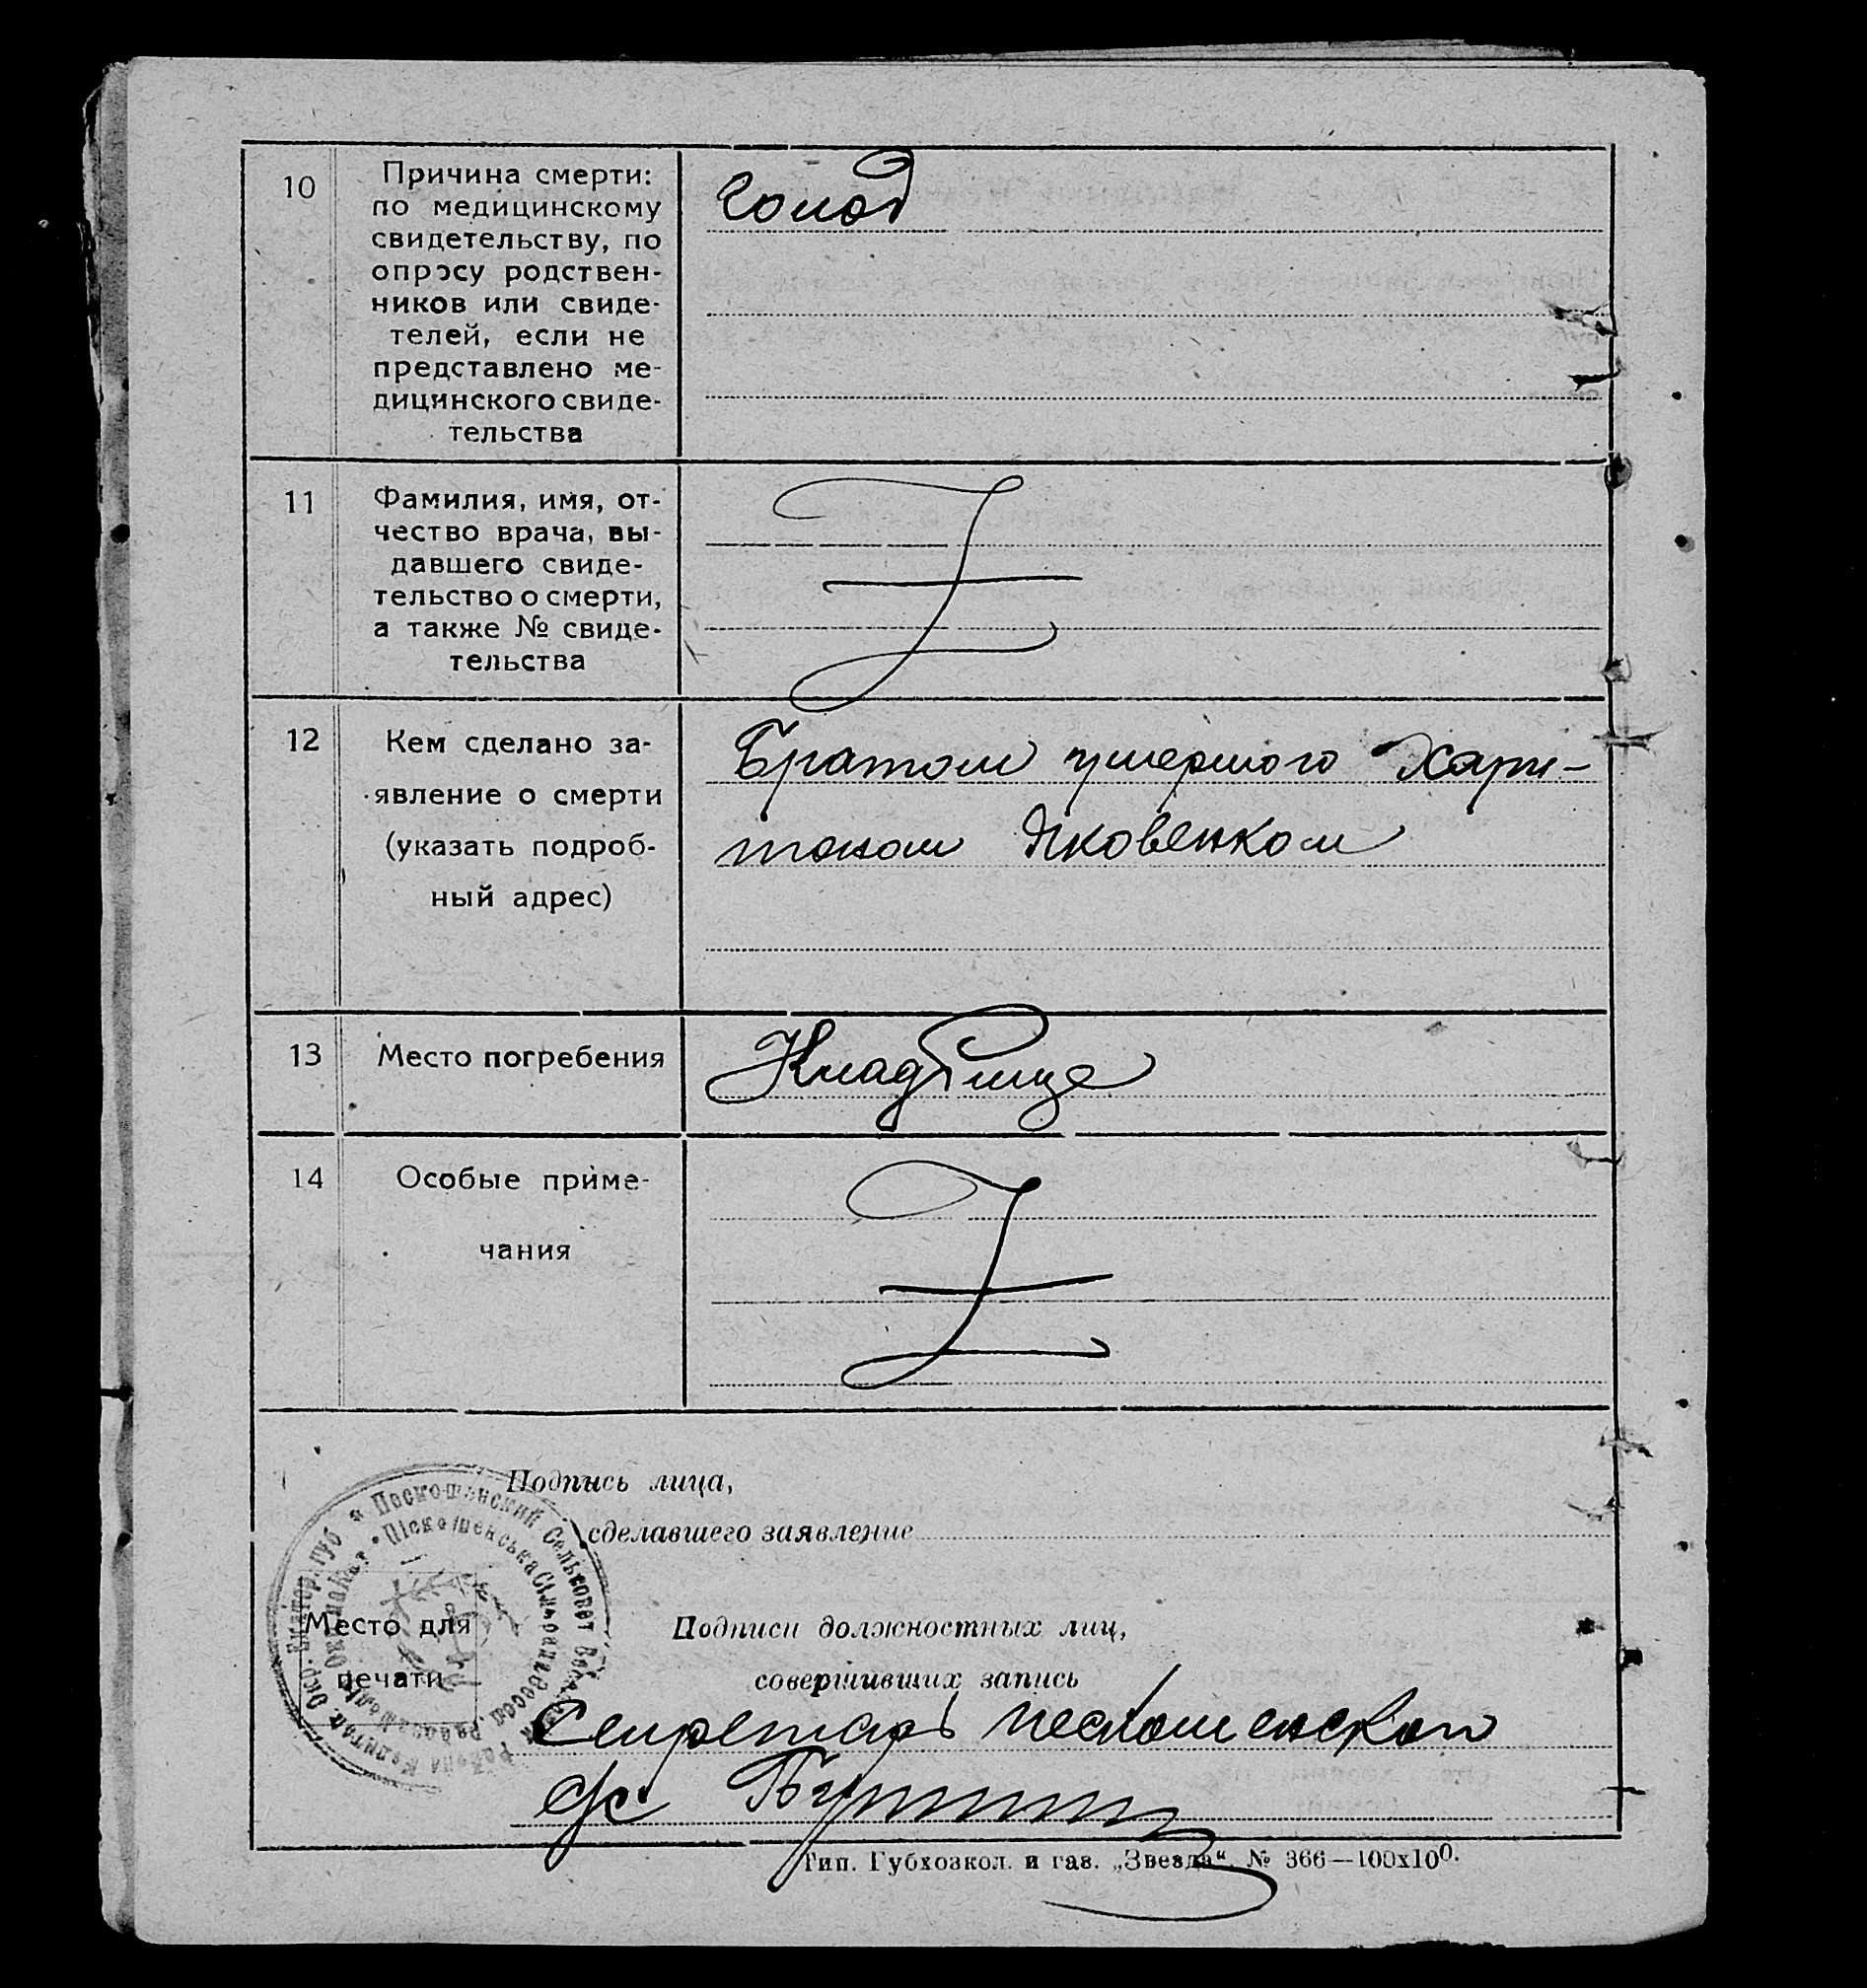 10
Причина смерти:
по медицинскому
свидетельству, по
опросу родствен-
ников или свиде-
телей, если не
представлено ме-
дицинского свиде-
тельства
голод
11
Фамилия, имя, от-
чество врача, вы-
давшего свиде-
тельство о смерти,
а также № свиде-
тельства
12
Кем сделано за-
явление о смерти
(указать подроб-
ный адрес)
Братом умершого Хари-
тоном Яковенком
13
Место погребения
Кладбище
14
Особые приме-
чания
Подпись лица,
сделавшего заявление
Место для
печати
Подписи должностных лиц,
совершивших запись
Секретарь пескошенской
с/с
Тип. Губхозкол. и газ. „Звезда“. № 366—100х100.